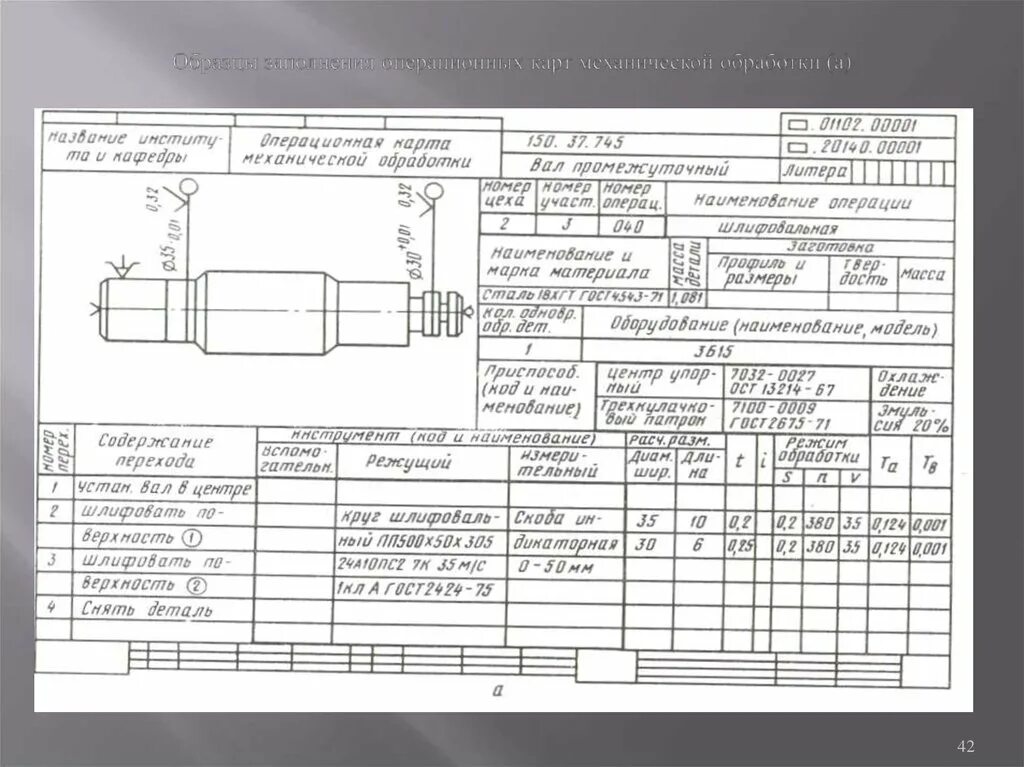 Образцы заполнения операционных карт механической обработки (а)
название институ-
та и кафедры
Операционная карта
механической обработки
150. 37. 745
Вал промежуточный
. 01102. 00001
. 20140. 00001
Литера
0,32
0,32
Ø35-0,01
Ø30+0,01
номер цеха
номер участ.
номер операц.
Наименование операции
2
3
040
шлифовальная
Наименование и
марка материала
масса детали
Заготовка
Профиль и
размеры
твер-
дость
масса
Сталь 18ХГТ ГОСТ4543-71
1,081
кол. одновр.
обр. дет.
Оборудование (наименование, модель)
1
3Б15
Приспособ.
(код и наи-
менование)
центр упор-
ный
7032-0027
ОСТ 13214-67
Охлаж-
дение
Трехкулачко-
вый патрон
7100-0009
ГОСТ2675-71
Эмуль-
сия 20%
номер перех.
Содержание
перехода
инструмент (код и наименование)
Вспомо-
гательн.
Режущий
измери-
тельный
Расч. разм.
Диам.
шир.
Дли-
на
t
i
Режим
обработки
S
n
v
Tа
Tв
1
Устан. вал в центре
2
шлифовать по-
круг шлифоваль-
Скоба ин-
35
10
0,2
0,2
380
35
0,124
0,001
верхность 1
ный ПП500×50×305
дикаторная
30
6
0,25
0,2
380
35
0,124
0,001
3
шлифовать по-
24А10ПС2 7К 35м/с
0-50мм
верхность 2
1кл А ГОСТ2424-75
4
Снять деталь
а
42